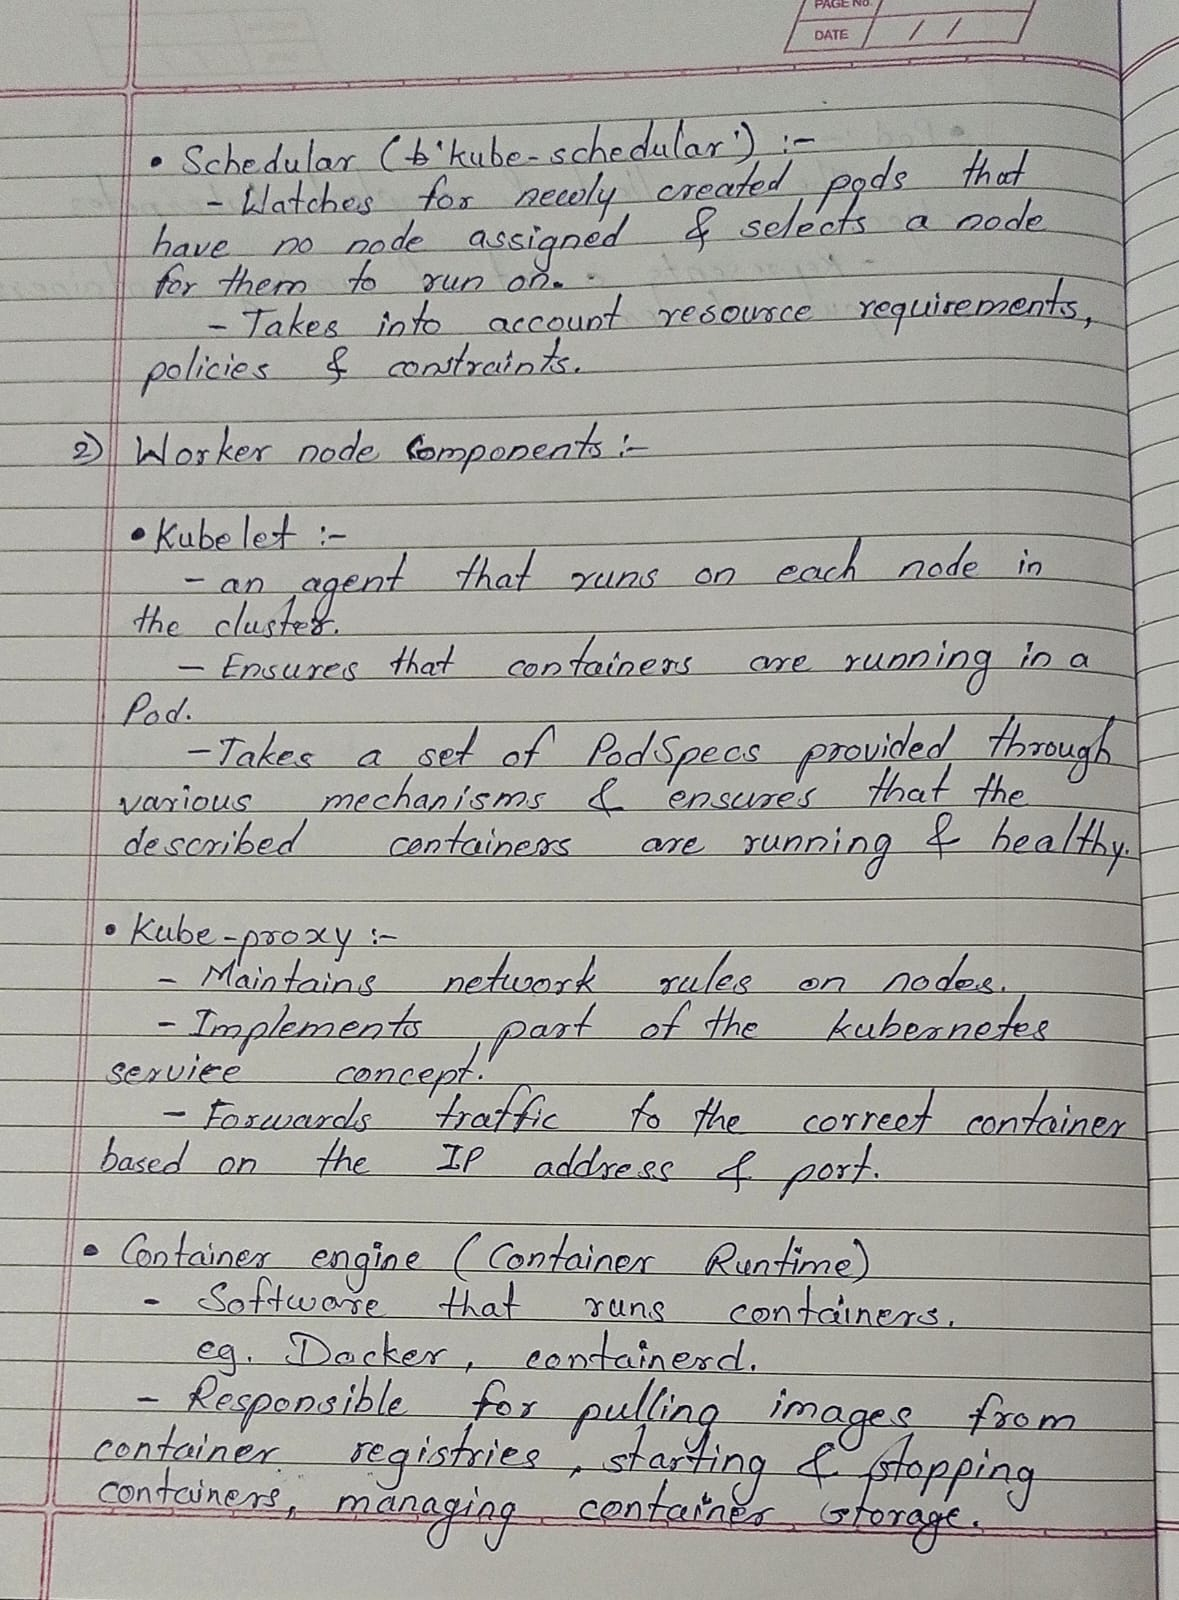 PAGE No.
DATE / /
• Schedular (b'kube-schedular') :-
- Watches for newly created pods that
have no node assigned & selects a node
for them to run on.
- Takes into account resource requirements,
policies & constraints.
2) Worker node Components :-
• Kubelet :-
- an agent that runs on each node in
the cluster.
- Ensures that containers are running in a
Pod.
- Takes a set of PodSpecs provided through
various mechanisms & ensures that the
described containers are running & healthy.
• Kube-proxy :-
- Maintains network rules on nodes.
- Implements part of the kubernetes
service concept.
- Forwards traffic to the correct container
based on the IP address & port.
• Container engine (Container Runtime)
- Software that runs containers.
eg. Docker, containerd.
- Responsible for pulling images from
container registries, starting & stopping
containers, managing container storage.